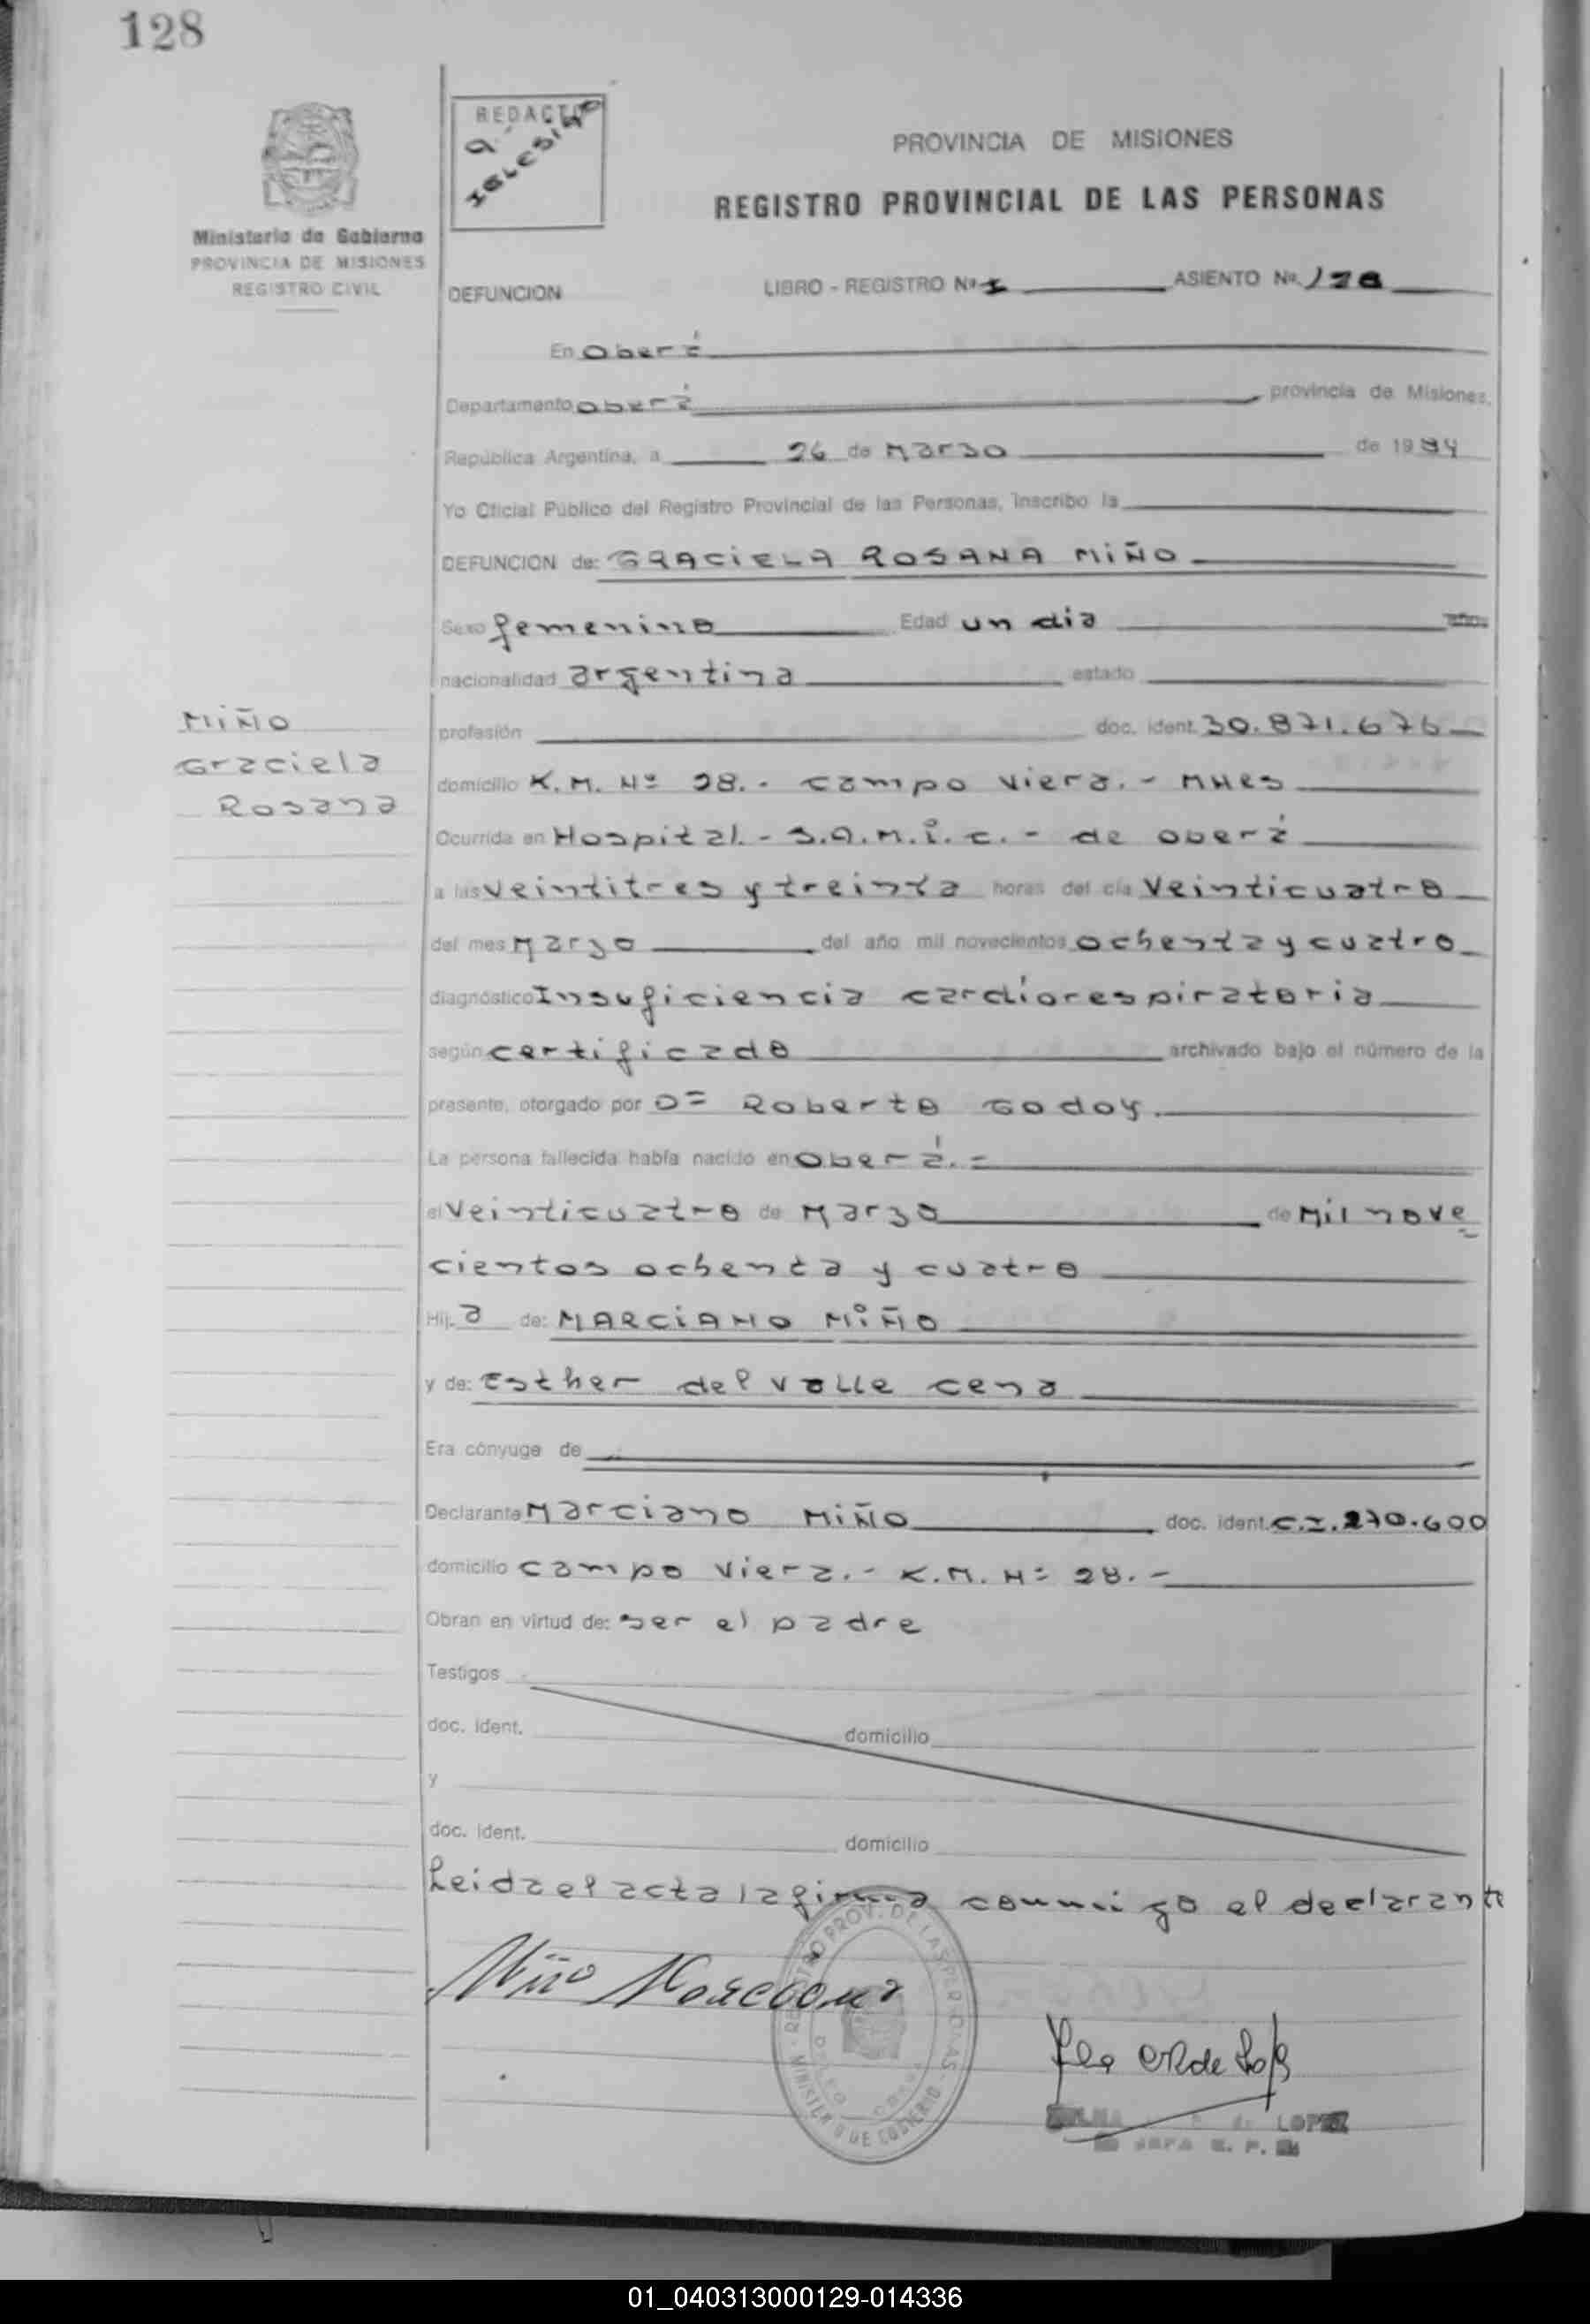 128
REDACTO
A. IGLESIAS
PROVINCIA DE MISIONES
REGISTRO PROVINCIAL DE LAS PERSONAS
Ministerio de Gobierno
PROVINCIA DE MISIONES
REGISTRO CIVIL
DEFUNCION LIBRO - REGISTRO Nº I ASIENTO Nº 128
En Oberá
Departamento Oberá provincia de Misiones,
República Argentina, a 26 de Marzo de 1984
Yo Oficial Público del Registro Provincial de las Personas, inscribo la
DEFUNCION de: GRACiELA ROSANA MiÑO
Sexo femenino Edad un dia años
nacionalidad argentina estado
MiÑO
Graciela
Rosana
profesión doc. ident. 30.871.676
domicilio K.M. Nº 28.- Campo Viera.- MNES
Ocurrida en Hospital.- S.A.M.i.C.- de Oberá
a las veintitres y treinta horas del día veinticuatro
del mes Marzo del año mil novecientos ochenta y cuatro
diagnóstico Insuficiencia cardiorespiratoria
según certificado archivado bajo el número de la
presente, otorgado por Dr Roberto Godoy.
La persona fallecida había nacido en Oberá.-
el veinticuatro de Marzo de Mil nove
cientos ochenta y cuatro
Hij a de: MARCiANO MiÑO
y de: Esther del Valle Cena
Era cónyuge de
Declarante Marciano MiÑO doc. ident. C.I. 270.600
domicilio Campo Viera.- K.M. Nº 28.-
Obran en virtud de: ser el padre
Testigos
doc. ident. domicilio
y
doc. ident. domicilio
Leida el acta la firma conmigo el declarante
Miño Marciano
REGISTRO PROV. DE LAS PERSONAS
MINISTERIO DE GOBIERNO
LOPEZ
01_040313000129-014336